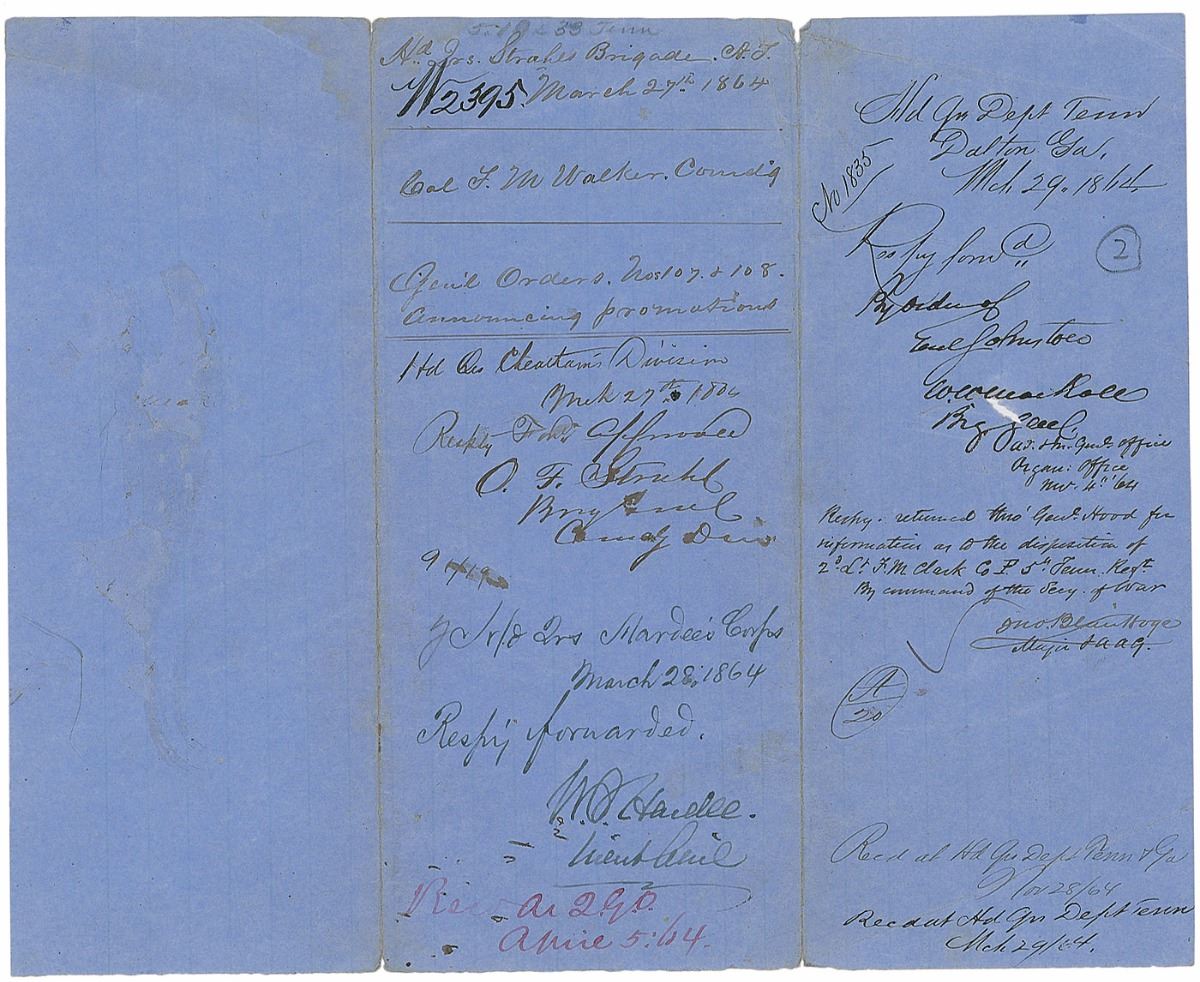 5. 19 & 33 Tenn
Hd Qrs. Strahls Brigade. A. T.
W2395. March 27th 1864
Col F. M Walker. Comd'g
Gen'l Orders. Nos 107. & 108.
Announcing promotions
Hd Qrs Cheathams Division
Mch 27th 1864
Respy Ford Approved
O. F. Strahl
Brig Genl
Comdg Divis
Hd Qrs Hardee's Corps
March 28, 1864
Resp'y forwarded.
W. J. Hardee.
Lieut Genl
Rec A. I. G. O.
April 5. 64.
Hd Qrs Dept Tenn
Dalton Ga.
Mch 29. 1864
No 1835
Respy forwd
2
By order of
Genl Johnston
W. W. Mackall
Brig Genl
Ad. & In. Genls. Office
Organ: Office
Nov. 4" 64
Respy. returned thro' Genl. Hood for
information as to the disposition of
2d Lt F. M Clark Co F 5th Tenn. Regt.
By command of the Secy. of War
Jno Blair Hoge
Major & A A G.
A
20
Recd at Hd Qrs Dept Tenn & Ga
Nov 28/64
Recd at Hd Qrs Dept Tenn
Mch 29/64.